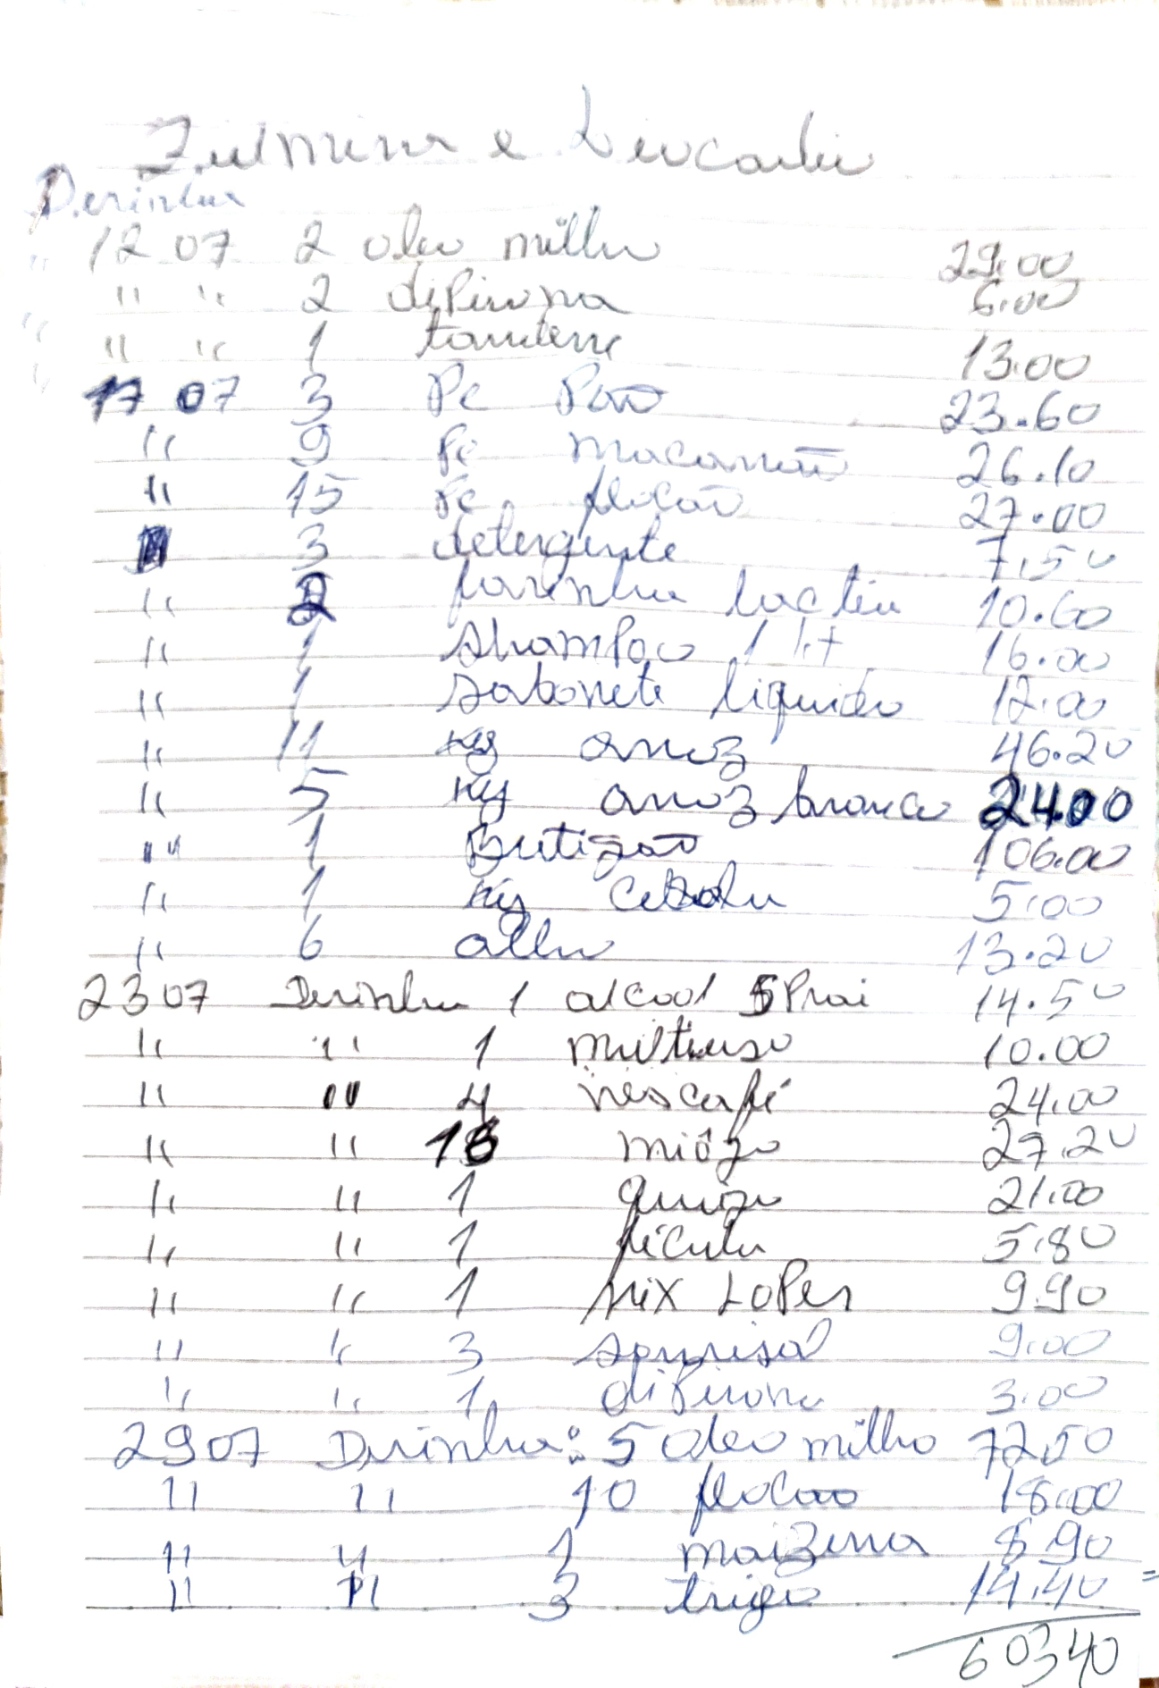 Zulmira e Leocadia
Derinha
12 07 2 oleo milho 29.00
" " 2 dipirona 6.00
" " 1 tandene 13.00
17 07 3 Pc Pão 23.60
" 9 Pc macarrão 26.10
" 15 Pc flocão 27.00
" 3 detergente 7.50
" 2 farinha lactea 10.60
" 1 shampoo 1 lt 16.00
" 1 sabonete liquido 12.00
" 11 kg arroz 46.20
" 5 kg arroz branco 24.00
" 1 Butijão 106.00
" 1 kg Cebola 5.00
" 6 alho 13.20
23 07 Derinha 1 alcool 5 14.50
" " 1 multiuso 10.00
" " 4 nescafé 24.00
" " 16 miôjo 27.20
" " 1 21.00
" " 1 fécula 5.80
" " 1 mix LoPes 9.90
" " 3 sonrisal 9.00
" " 1 diPirona 3.00
29 07 Derinha: 5 oleo milho 72.50
" " 10 flocão 18.00
" " 1 maizena 8.90
" " 3 trigo 14.40 =
603 40